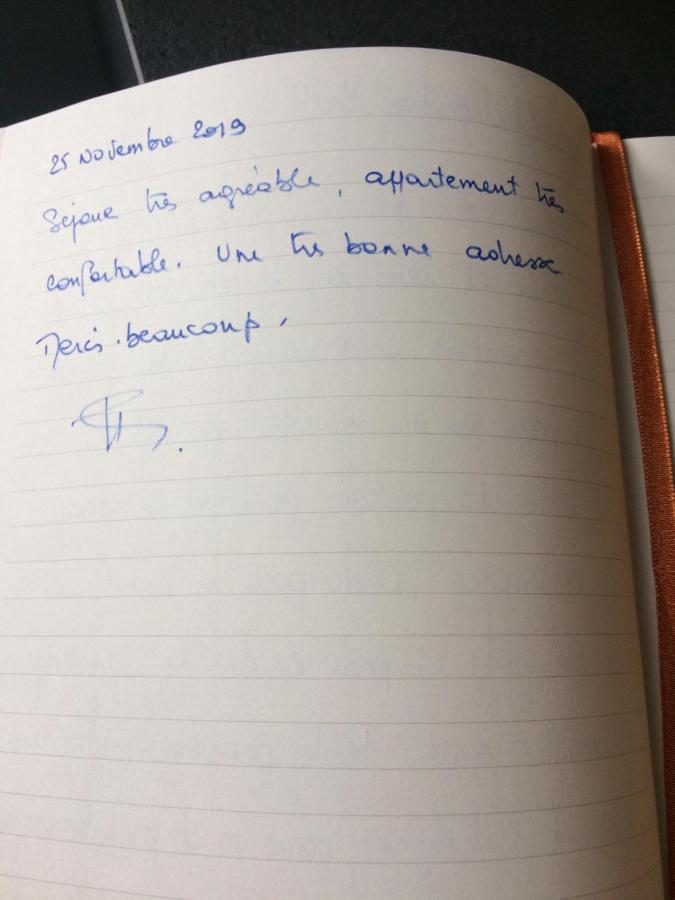 25 Novembre 2019
Sejour très agréable, appartement très
confortable. Une très bonne adresse
Merci beaucoup.